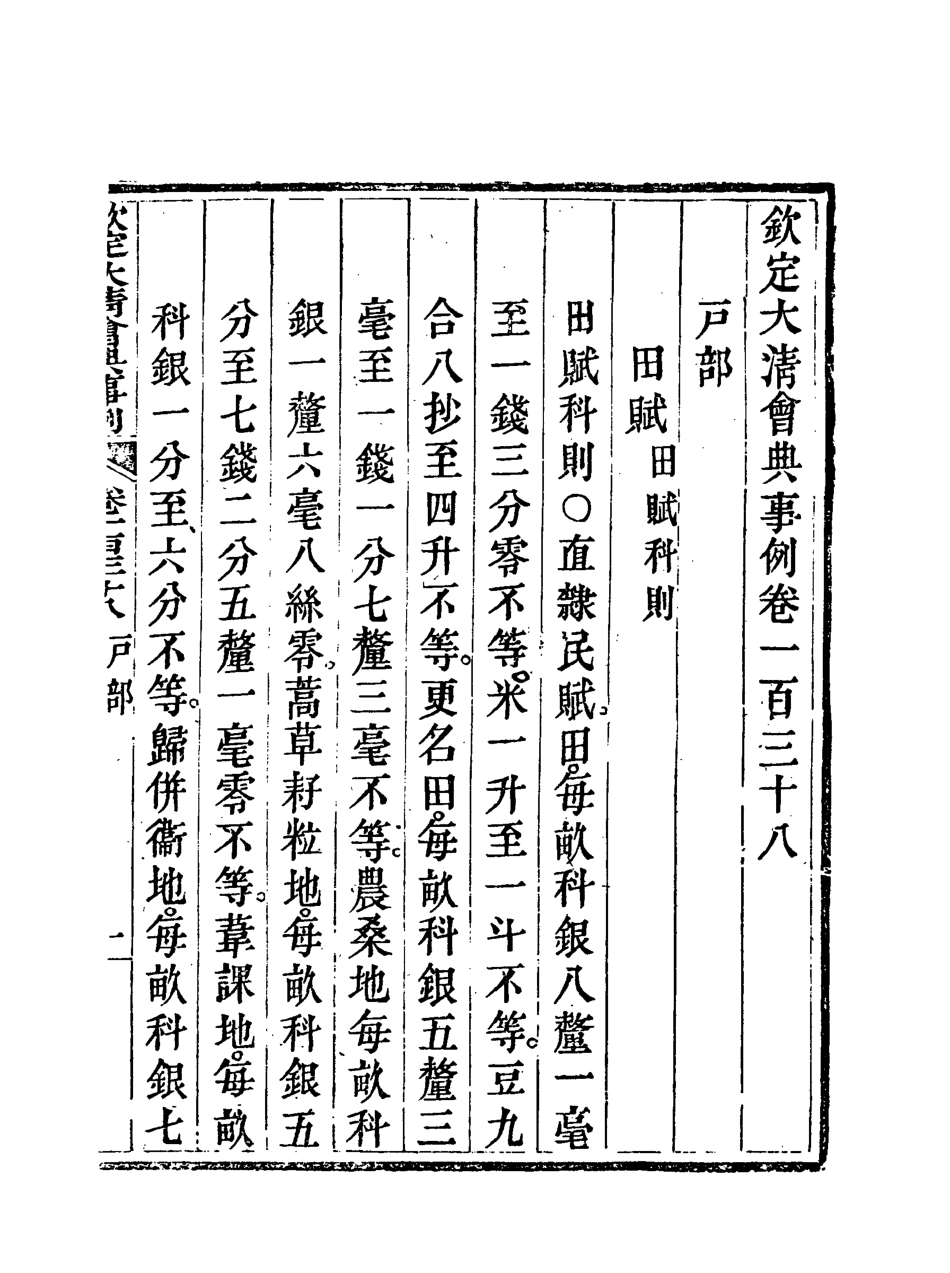 欽定大淸會典事例卷一百三十八
戸部
田賦田賦科則
田賦科則〇直隸民賦田。每畝科銀八釐一毫
至一錢三分零不等。米一升至一斗不等。豆九
合八抄至四升不等。更名田。每畝科銀五釐三
毫至一錢一分七釐三毫不等。農桑地每畝科
銀一釐六毫八絲零。蒿草籽粒地。每畝科銀五
分至七錢二分五釐一毫零不等。葦課地。每畝
科銀一分至六分不等。歸併衞地。每畝科銀七
欽定大淸會典事例 卷一百三十八 戸部 一